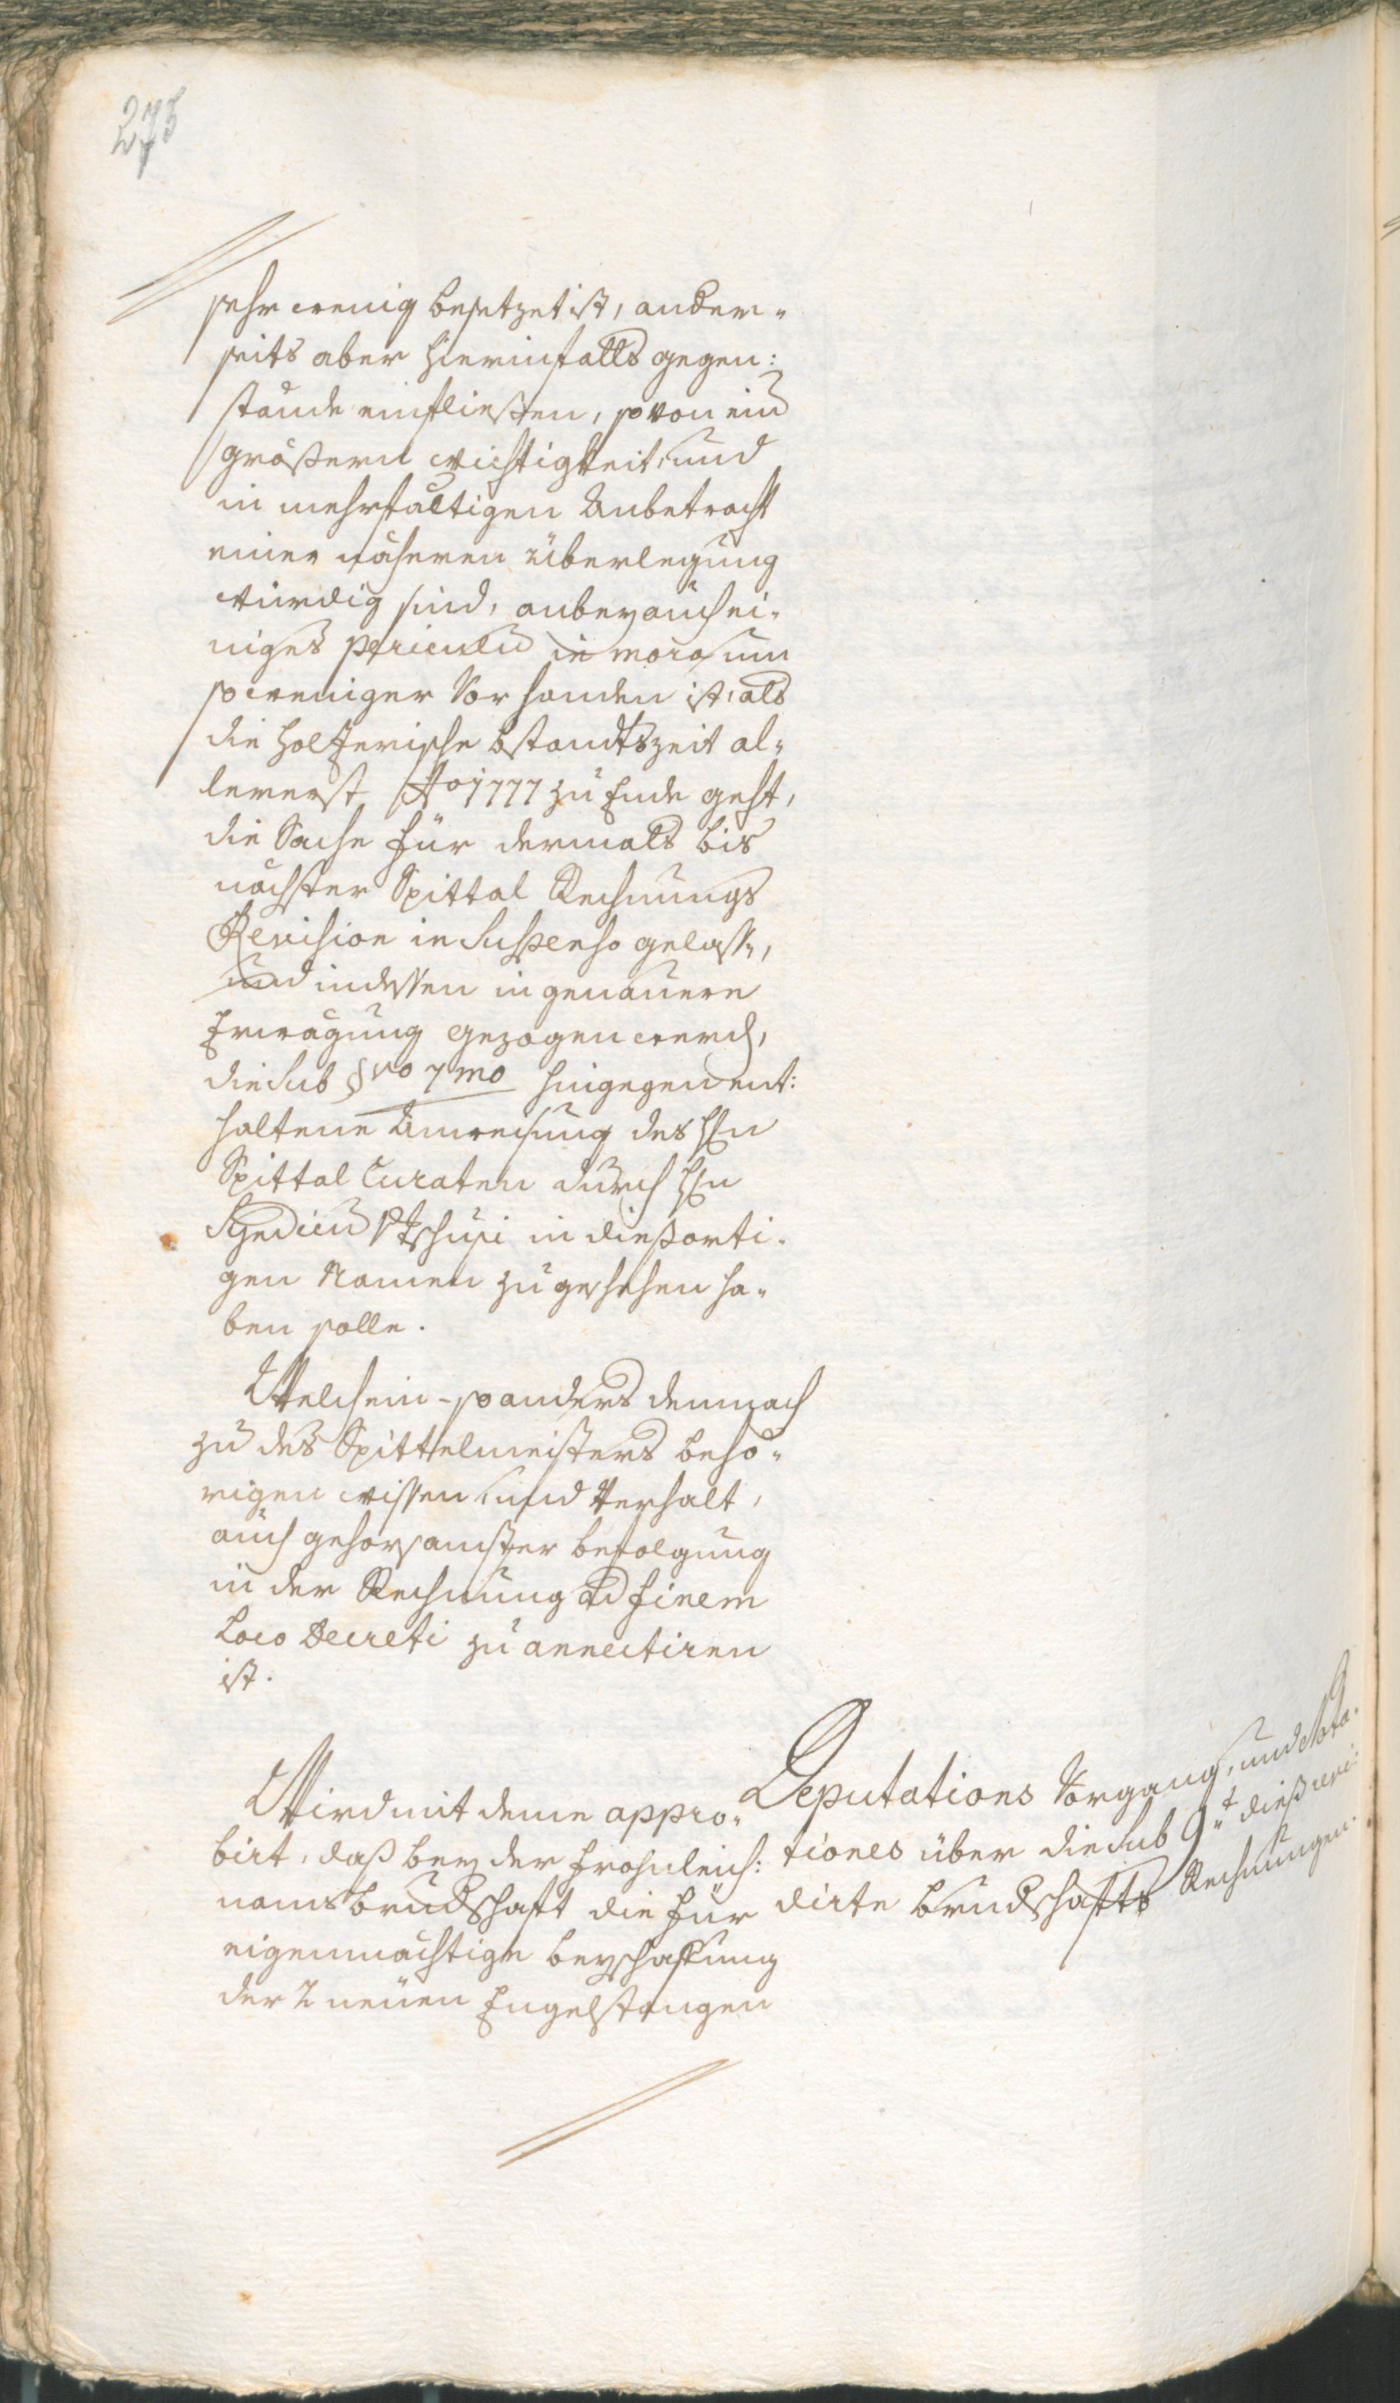 275
sehr wenig besetzet ist, ander=
seits aber hierinfalls gegen:
stände einfließen, so von ein
größern wichtigkeit, und
in mehrfältigen Anbetracht
einer näheren überlegung
würdig sind, anbey auch ei=
niges periculum in mora um
so weniger Vorhanden ist, als
die Holzerische bstandtszeit al=
lererst Ao 1777 zu Ende geht,
die Sache für dermals bis
nächster Spittal Rechnungs
Revision in Suspenso gelassen,
und indessen in genauere
Erwägung gezogen werden,
die Sub §vo 7mo hingegen ent:
haltene Anweisung des Hn
Spittal Curaten durch Hn
Syndicum in diesorti=
gen Namen zu geschehen ha=
ben solle.
Welch ein- so anders demnach
zu des Spittelmeisters behö=
rigen wissen und Verhalt,
auch gehorsamster befolgung
in der Rechnung ad finem
Loco Decreti zu annectiren
ist.
Wird mit deme appro=
birt, daß bey der Frohnleich:
nams brudschaft die für
eigenmächtige beyschaffung
der 2 neuen Engelstangen
Deputations Vorgang, und Nota=
tiones über die Sub 9t dieß revi:
dirte brudschafts Rechnungen.